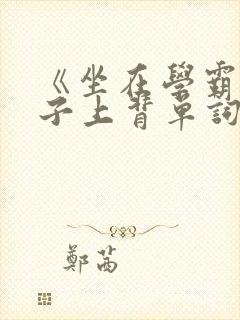 《坐在學霸
子上背單詞
鄭茜